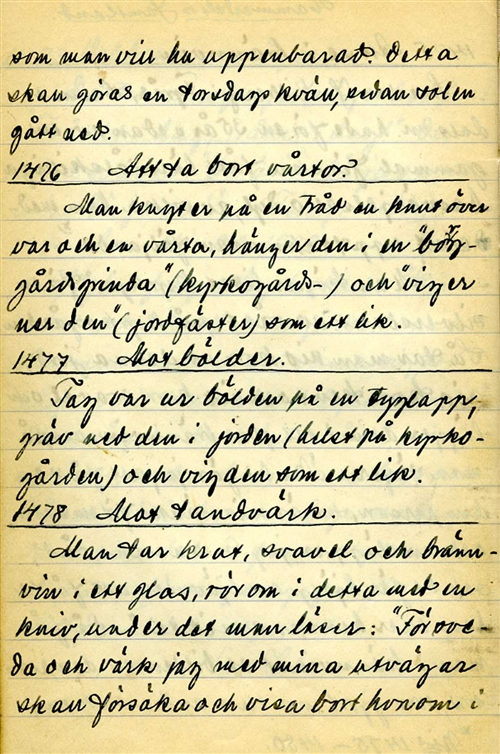 som man vill ha uppenbarad. Detta
skall göras en torsdags kväll, sedan solen
gått ned.
1476 Att ta bort vårtor.
Man knyter på en tråd en knut över
var och en vårta, hänger den i en "börg-
gårdsgrinda" (kyrkogårds-) och "viger
ner den" (jordfäster) som ett lik.
1477 Mot bölder.
Tag var ur bölden på en tyglapp,
gräv ned den i jorden (helst på kyrko-
gården) och vig den som ett lik.
1478 Mot tandvärk.
Man tar krut, svavel och bränn-
vin i ett glas, rör om i detta med en
kniv, under det man läser: "Förove-
da och värk jag med mina utvägar
skall försöka och visa bort honom i